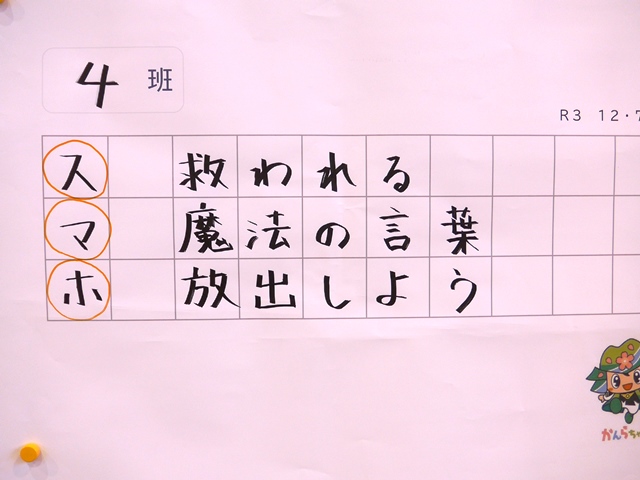 4班
R3 12・7
ス 救われる
マ 魔法の言葉
ホ 放出しよう
かんらちゃ